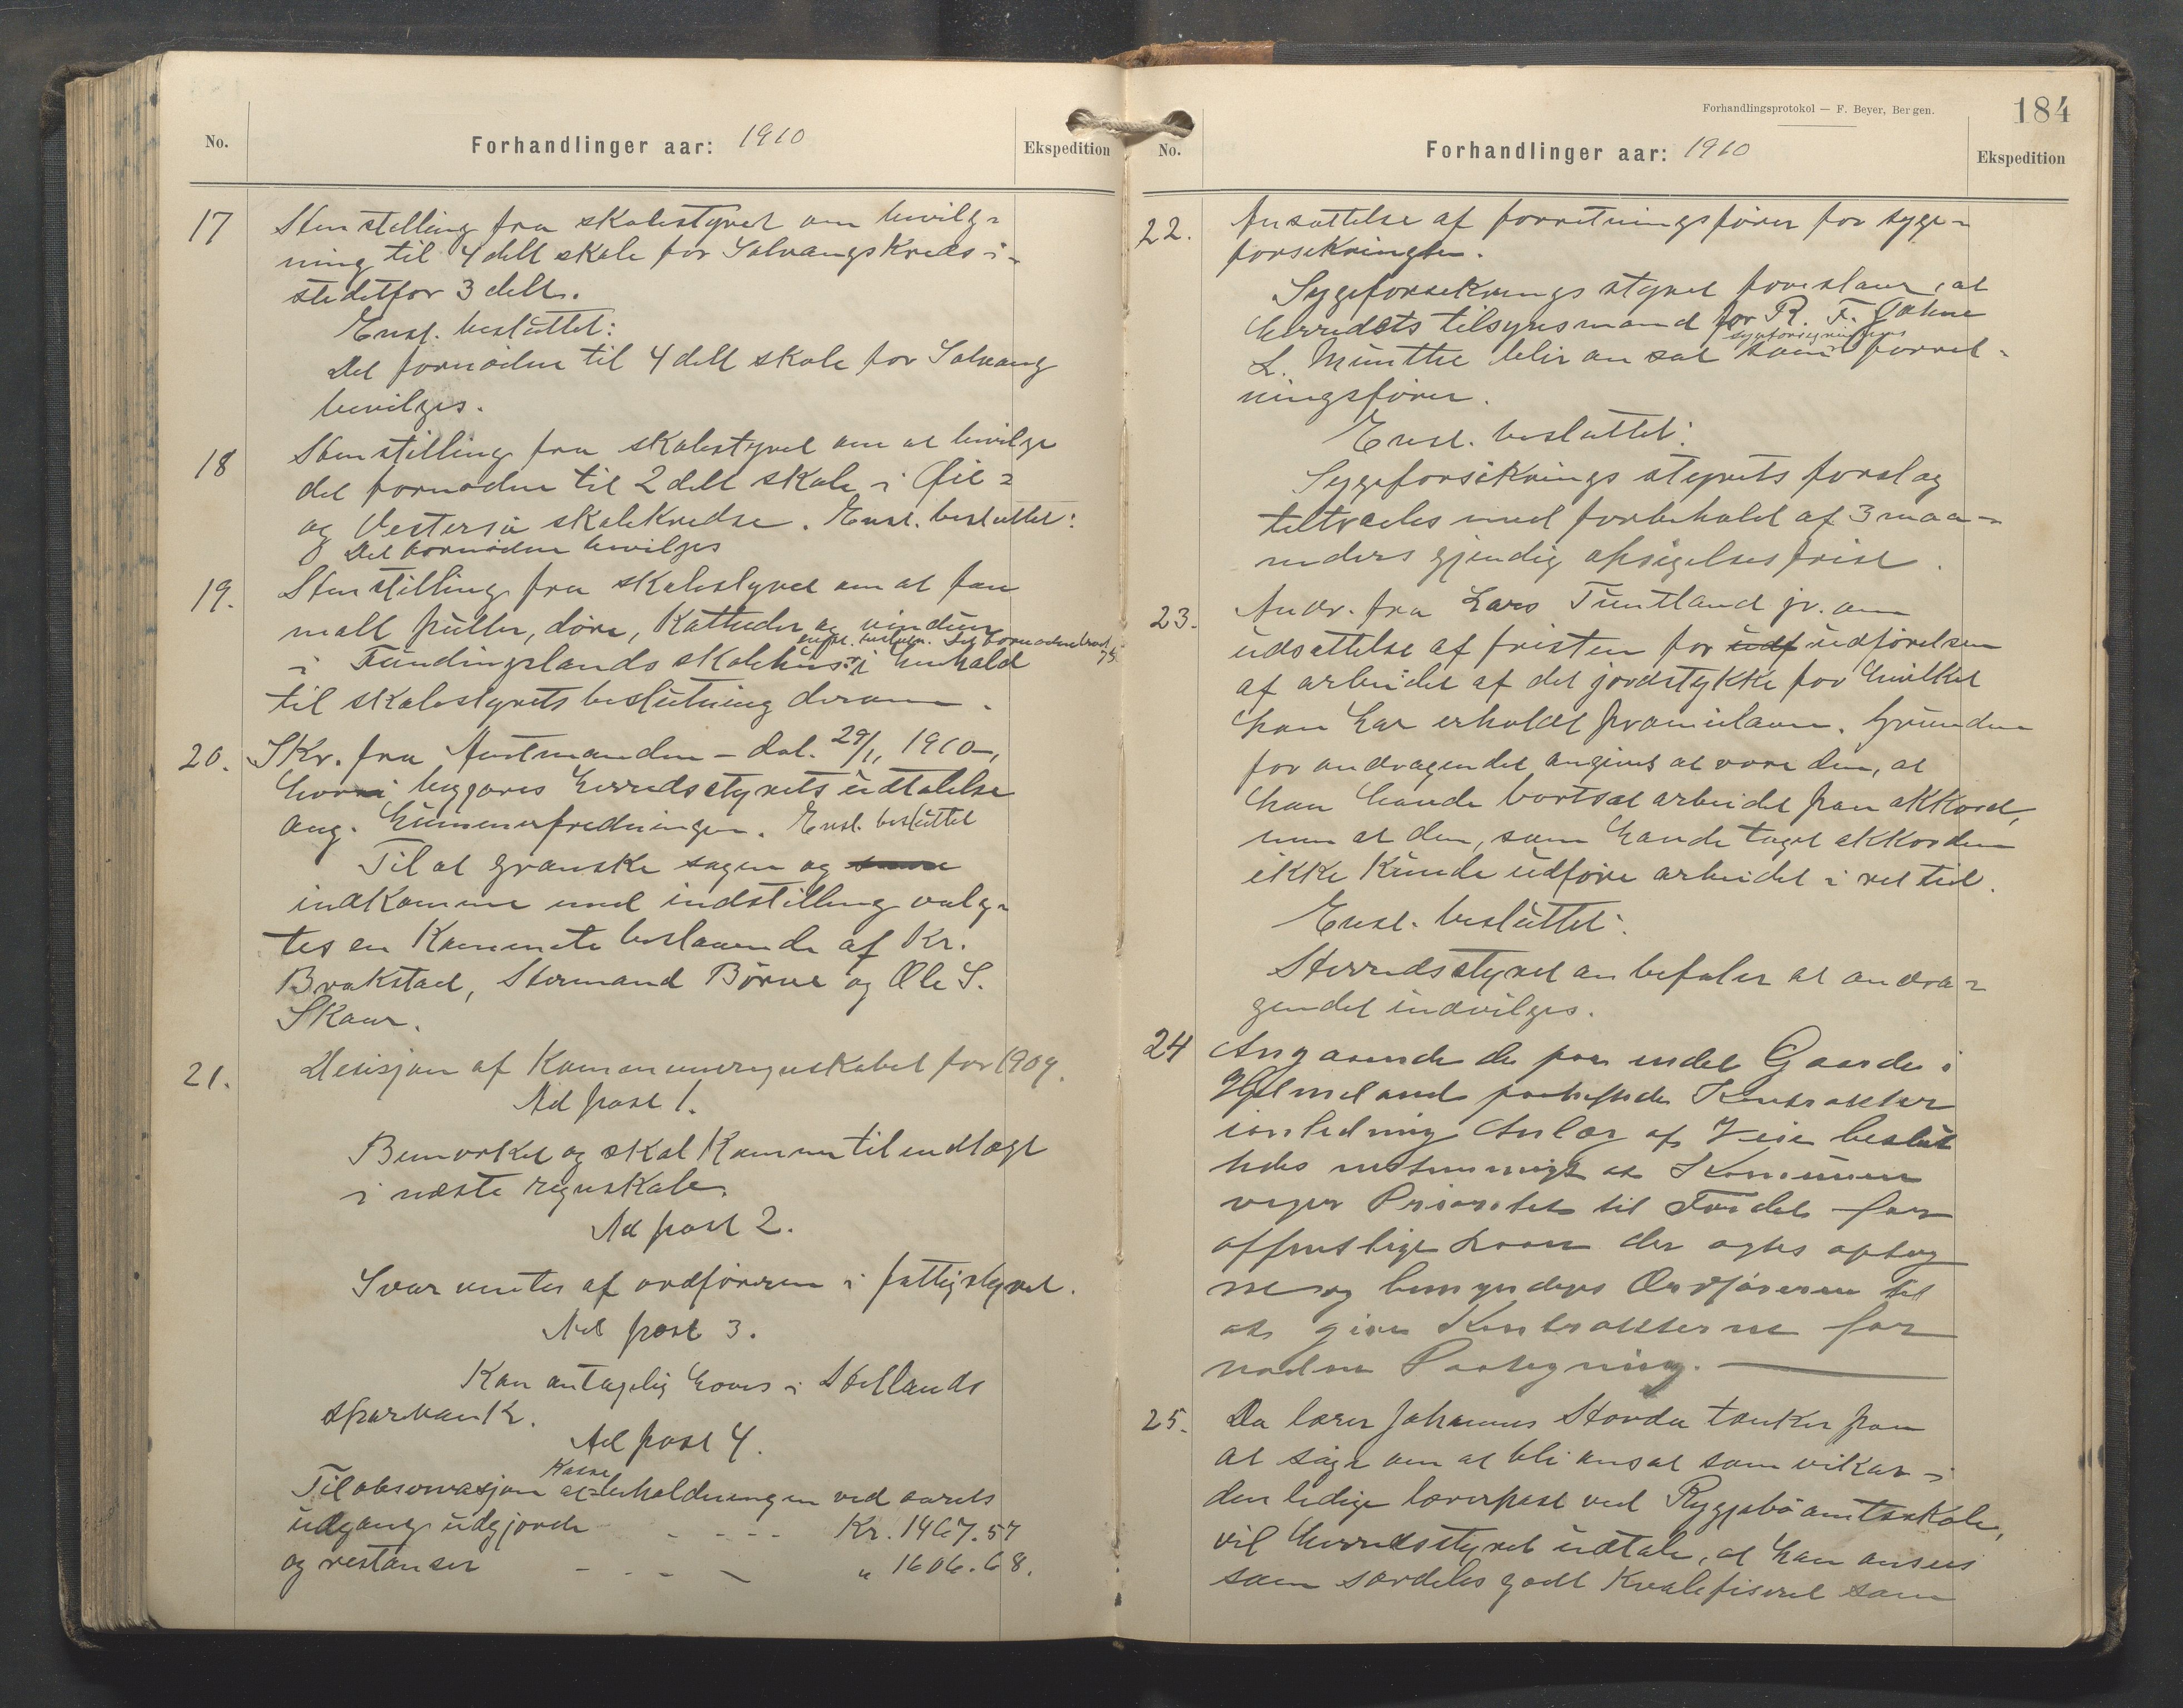 No.
Forhandlinger aar: 1910
Ekspedition
17
Henstilling fra skolestyret om bevilg=
ning til 4 delt skole for Solvangs Kreds i-
stedetfor 3 delt.
Enst. besluttet:
Det fornødne til 4 delt skole for Solvang
bevilges.
18
Henstilling fra skolestyret om at bevilge
det fornødne til 2 delt skole i
og Vestersjø skolekredse. Enst. besluttet:
Det fornødne bevilges
19.
Henstilling fra skolestyret om at faa
malt pulter, døre, Katheder og vinduer
enst. besluttn. Det fornødne
i Fundingslands skolehus i henhold
til skolestyrets beslutning derom.
20.
Skr. fra Amtmanden - dat. 29/1 1910,
hvori begjæres herredsstyrets udtalelse
ang. hummerfredningen. Enst. besluttet
Til at granske sagen og
indkomme med indstilling valg=
tes en Kommite bestaaende af Kr.
Brakstad, Hermand Børne og Ole S.
Skaar.
21.
Desisjon af Kommuneregnskabet for 1909.
Ad post 1.
Bemærket og skal Komme til indtægt
i næste regnskab.
Ad post 2.
Svar ventes af ordføreren i fattigstyret.
Ad post 3.
Kan antagelig hæves i Hetlands
sparebank.
Ad post 4.
Kasse
Til observasjon at beholdningen ved aarets
udgang udgjorde - - - - Kr. 1467.57
og restanser - - - - " 1606.68.
Forhandlingsprotokol — F. Beyer, Bergen.
184
No.
Forhandlinger aar: 1910
Ekspedition
22.
Ansættelse af forretningsfører for syge=
forsikringen.
Sygeforsikrings styret foreslaar, at
herredets tilsynsmand for R. F.
L. Munthe blir ansat som forret=
ningsfører.
Enst. besluttet:
Sygeforsikrings styrets forslag
tiltrædes med forbehold af 3 maa-
neders gjensidig opsigelsesfrist.
23.
Andr. fra Lars Tuntland jr. om
udsættelse af fristen for udf udførelsen
af arbeidet af det jordstykke for hvilket
han har erholdt præmielaan. Grunden
for andragendet angives at være den, at
han havde bortsat arbeidet paa akkord,
men at den, som havde taget akkorden
ikke Kunde udføre arbeidet i ret tid.
Enst. besluttet:
Herredsstyret anbefaler at andra=
gendet indvilges.
24
Angaaende de paa endel Gaarde i
Hjelmeland paaheftede Kontrakter
i anledning Anlæg af Veie beslut
tedes enstemmigt at Kommunen
viger Prioritet til Fordel for
offentlige Laan der agtes optag
ne og bemyndiges Ordføreren til
at give Kontrakterne for
nøden Paategning.
25.
Da lærer Johannes Hovda tænker paa
at søge om at bli ansat som vikar i
den ledige lærerpost ved Ryggjabø amtsskole,
vil herredsstyret udtale, at han ansees
som særdeles godt Kvalifiseret som